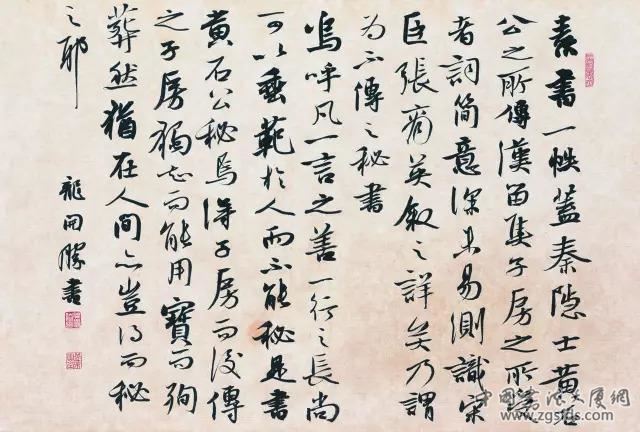 素書一帙蓋秦隱士黃石
公之所傳漢留侯子房之所受
者詞簡意深未易測識宋
臣張商英叙之詳矣乃謂
為不傳之秘書
嗚呼凡一言之善一行之長尚
可以垂範於人而不能秘是書
黃石公秘焉得子房而後傳
之子房獨知而能用寶而殉
葬然猶在人間亦豈得而秘
之耶
龍開勝書
中国书法大厦网
www.zgsfds.com